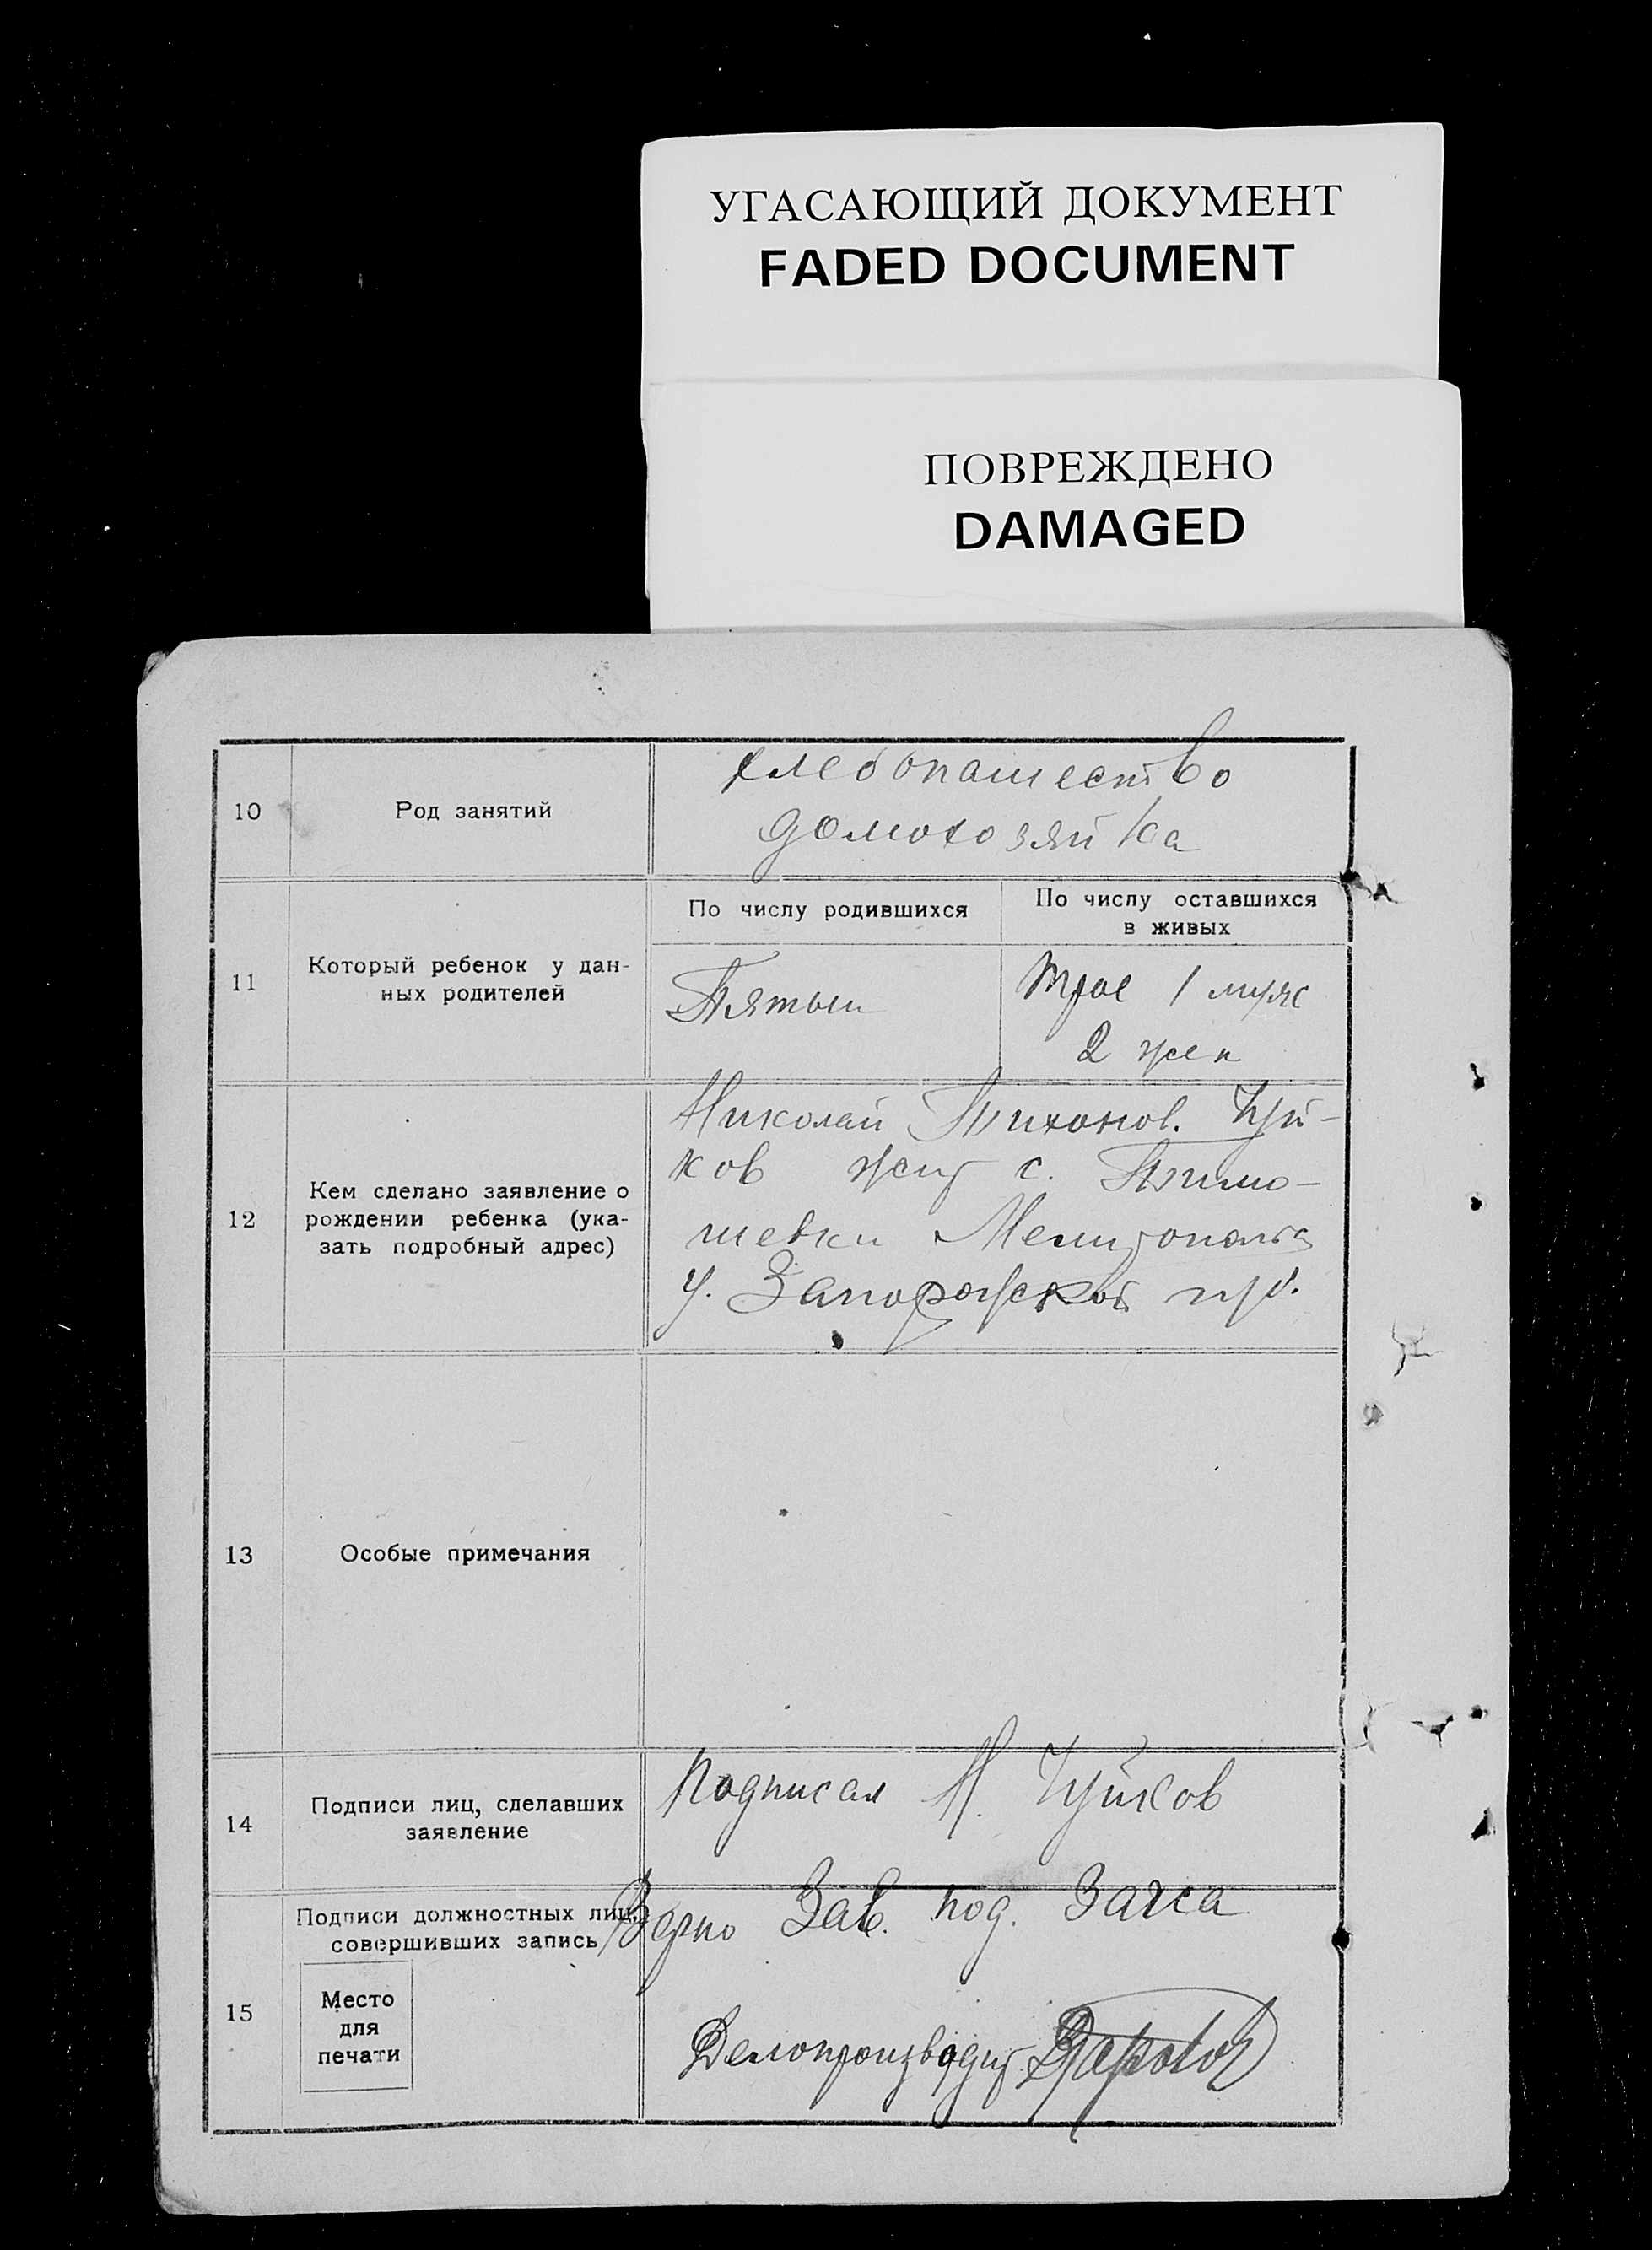 УГАСАЮЩИЙ ДОКУМЕНТ
FADED DOCUMENT
ПОВРЕЖДЕНО
DAMAGED
10
Род занятий
хлебопашество
домохозяйка
11
Который ребенок у дан-
ных родителей
По числу родившихся
По числу оставшихся
в живых
Пятый
Трое 1 муж
2 жен
12
Кем сделано заявление о
рождении ребенка (ука-
зать подробный адрес)
Николай Тихонов. Чуй-
ков жит с. Тимо-
шевки Мелитопольс
у. Запорожской губ.
13
Особые примечания
14
Подписи лиц, сделавших
заявление
Подписал Н. Чуйков
15
Подписи должностных лиц,
совершивших запись
Место
для
печати
Верно Зав. под. Загса
Делопроизводит.